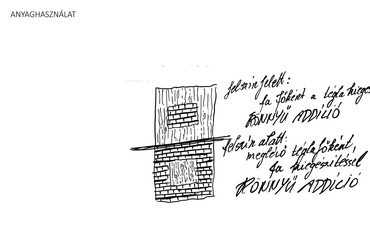 ANYAGHASZNÁLAT
felszín felett:
fa főként a tégla kiegés
KÖNNYŰ ADDÍCIÓ
felszín alatt:
meglévő tégla főként,
fa kiegészítéssel
KÖNNYŰ ADDÍCIÓ